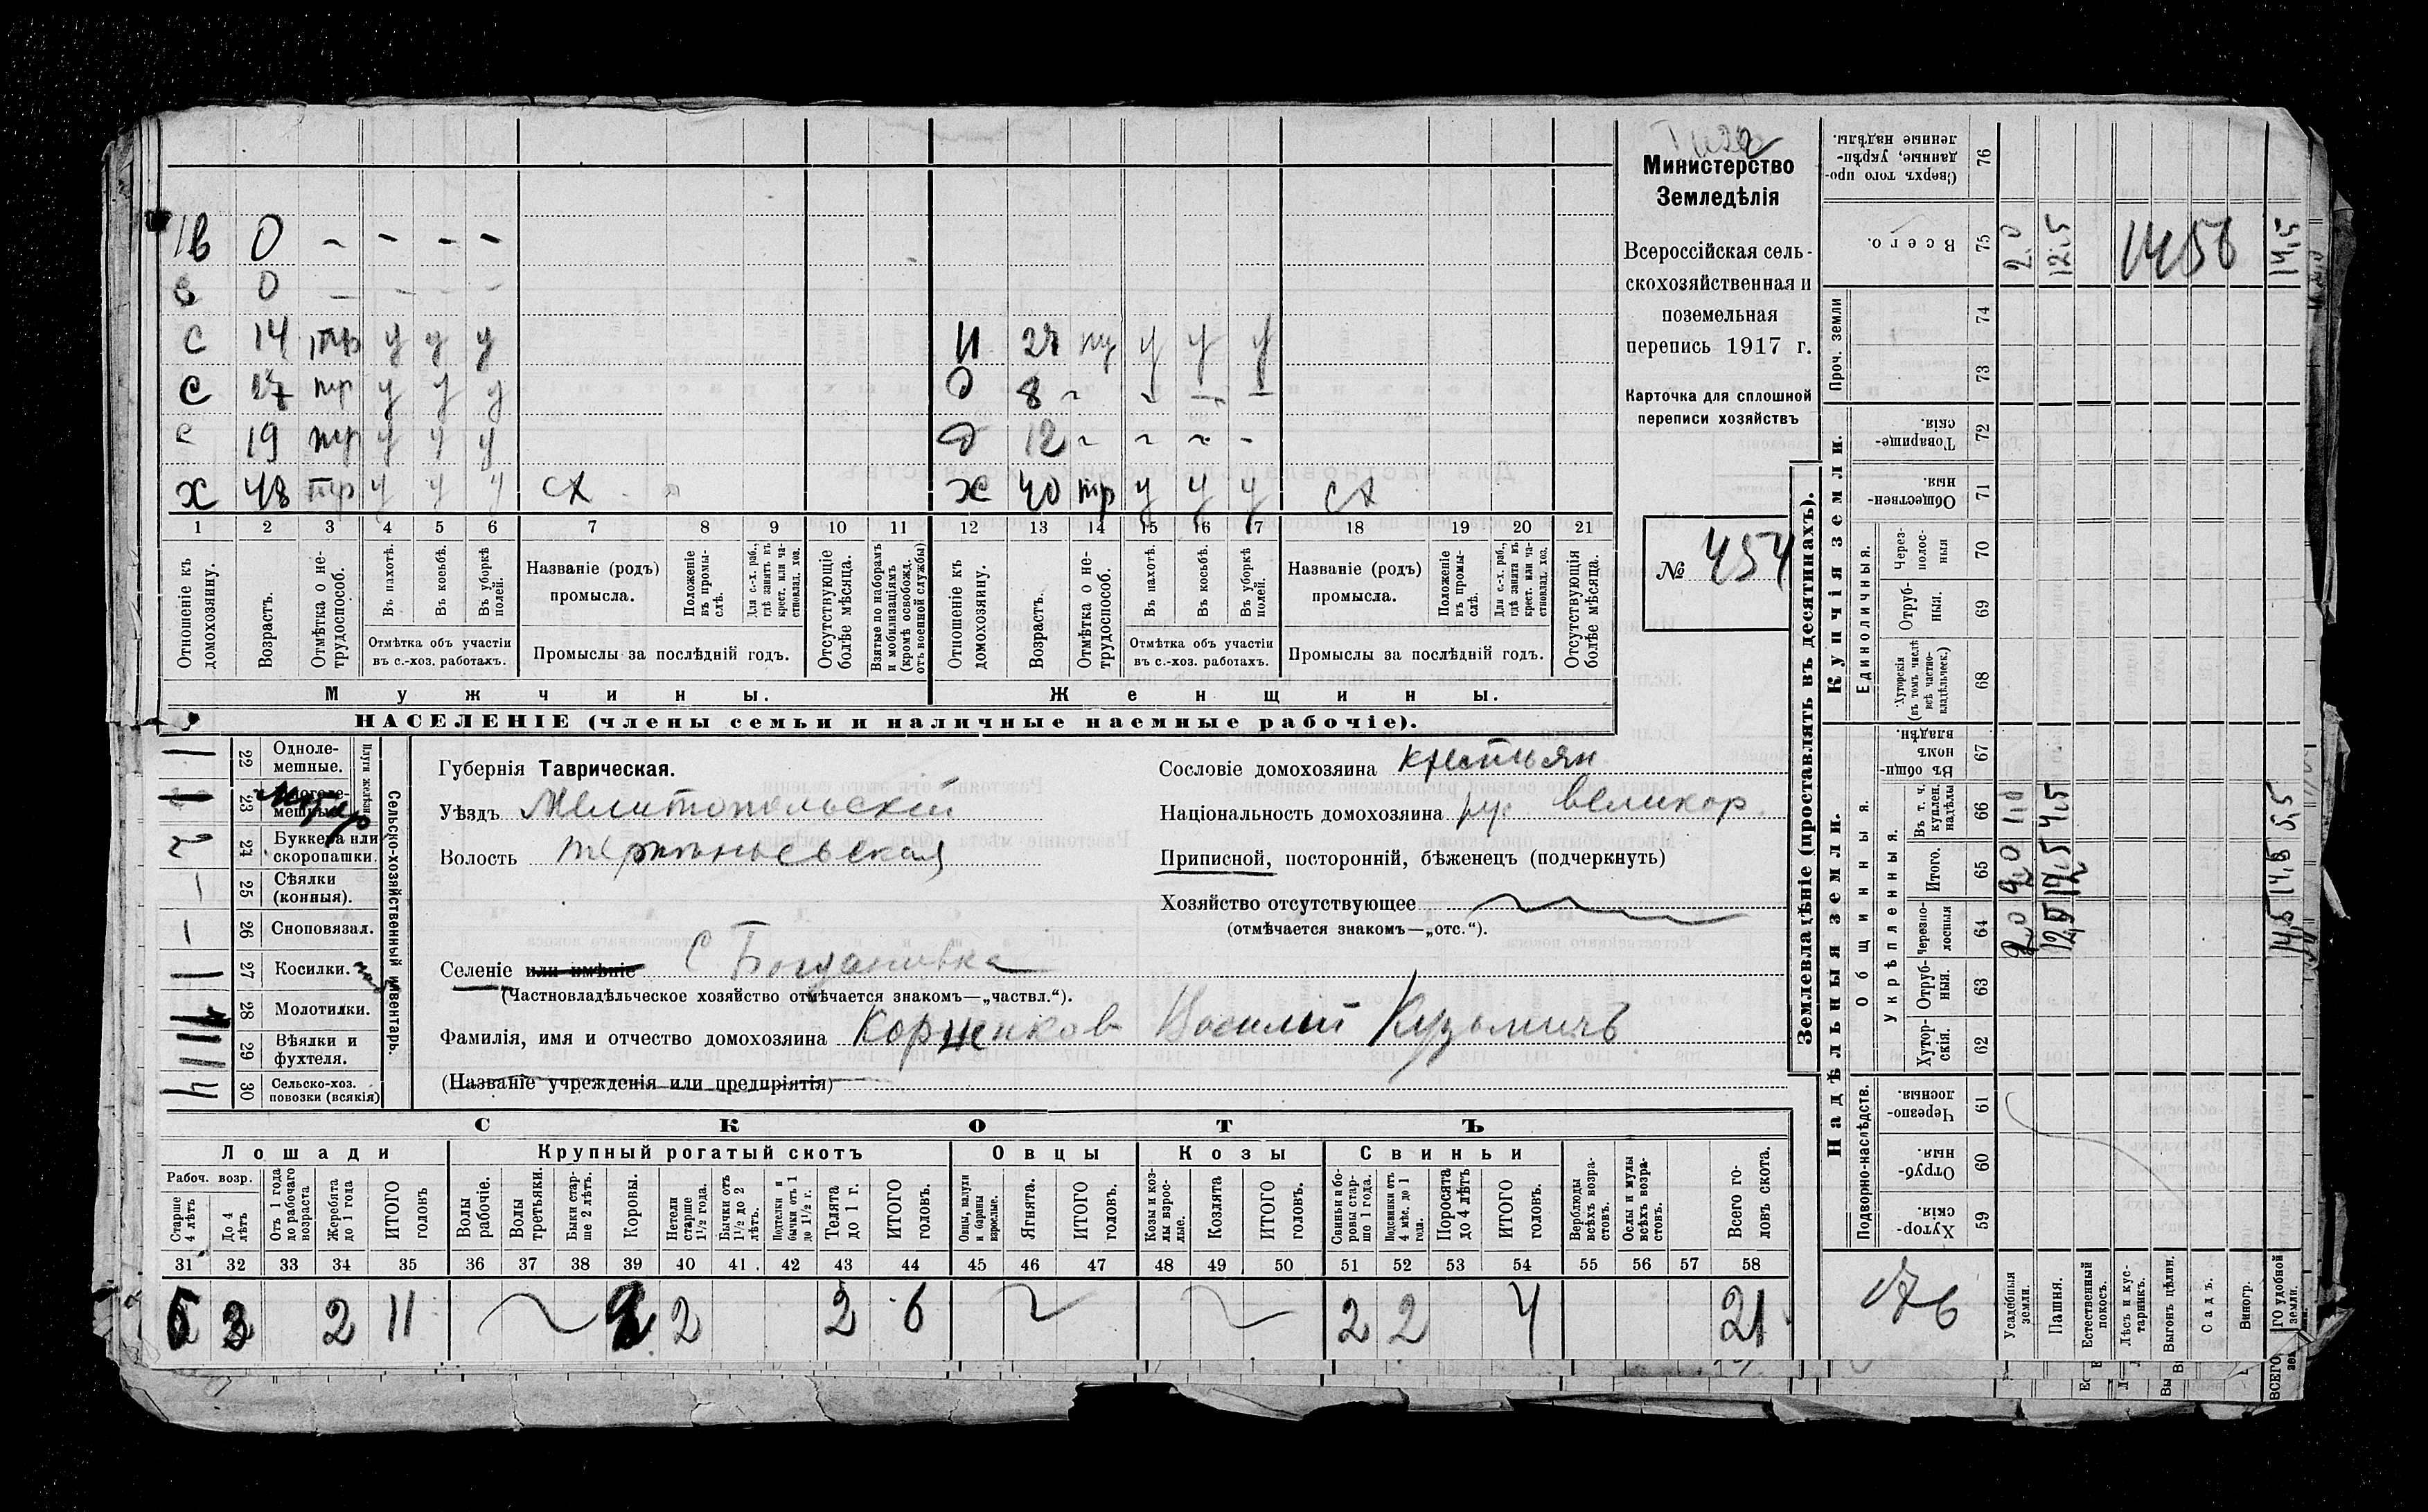 Министерство
Земледѣлія
Всероссійская сель-
скохозяйственная и
поземельная
перепись 1917 г.
Карточка для сплошной
переписи хозяйствъ
№ 454
в 0 – – – –
в 0 – – – –
с 14 тр у у у
с 17 тр у у у
с 19 тр у у у
х 48 тр у у у сх
И 27 у у у
д 8 – – – –
д 12 – – – –
ж 40 тр у у у сх
1 2 3 4 5 6 7 8 9 10 11 12 13 14 15 16 17 18 19 20 21
Отношеніе къ домохозяину.
Возрастъ.
Отмѣтка о не-трудоспособ.
Въ пахотѣ.
Въ косьбѣ.
Въ уборкѣ полей.
Отмѣтка объ участіи
въ с.-хоз. работахъ.
Названіе (родъ)
промысла.
Положеніе въ промы-слѣ.
Для с.-х. раб., гдѣ занятъ въ крест. или ча-стновлад. хоз.
Промыслы за послѣдній годъ.
Отсутствующіе болѣе мѣсяца.
Взятые по наборамъ и мобилизаціямъ (кромѣ освобожд. отъ военной службы)
Отношеніе къ домохозяину.
Возрастъ.
Отмѣтка о не-трудоспособ.
Въ пахотѣ.
Въ косьбѣ.
Въ уборкѣ полей.
Отмѣтка объ участіи
въ с.-хоз. работахъ.
Названіе (родъ)
промысла.
Положеніе въ промы-слѣ.
Для с.-х. раб., гдѣ занята въ крест. или ча-стновлад. хоз.
Промыслы за послѣдній годъ.
Отсутствующія болѣе мѣсяца.
Мужчины.
Женщины.
НАСЕЛЕНІЕ (члены семьи и наличные наемные рабочіе).
Сельско-хозяйственный инвентарь.
Плуги желѣзн.
22 Одноле-мешные.
23 Многоле-мешные.
24 Буккера или скоропашки.
25 Сѣялки (конныя).
26 Сноповязал.
27 Косилки.
28 Молотилки.
29 Вѣялки и фухтеля.
30 Сельско-хоз. повозки (всякія)
Губернія Таврическая.
Уѣздъ Мелитопольскій
Волость
Селеніе или имѣніе С Богдановка
(Частновладѣльческое хозяйство отмѣчается знакомъ—„частвл.“).
Фамилія, имя и отчество домохозяина Корженков Василий Кузьмичъ
(Названіе учрежденія или предпріятія)
Сословіе домохозяина крестьян
Національность домохозяина ру. великор.
Приписной, посторонній, бѣженецъ (подчеркнуть)
Хозяйство отсутствующее
(отмѣчается знакомъ—„отс.“).
СКОТЪ
Лошади Крупный рогатый скотъ Овцы Козы Свиньи
Рабоч. возр.
Старше 4 лѣтъ
До 4 лѣтъ
Отъ 1 года до рабочаго возраста
Жеребята до 1 года
ИТОГО головъ
Волы рабочіе.
Волы третьяки.
Быки стар-ше 2 лѣтъ.
Коровы.
Нетели старше 1½ года.
Бычки отъ 1½ до 2 лѣтъ.
Подтелки и бычки отъ 1 до 1½ г.
Телята до 1 г.
ИТОГО головъ.
Овцы, валухи и бараны взрослые.
Ягнята.
ИТОГО головъ.
Козы и коз-лы взрос-лые.
Козлята
ИТОГО головъ.
Свиньи и бо-ровы стар-ше 1 года.
Подсвинки отъ 4 мѣс. до 1 года.
Поросята до 4 лѣтъ
ИТОГО головъ.
Верблюды всѣхъ возра-стовъ.
Ослы и мулы всѣхъ возра-стовъ.
Всего го-ловъ скота.
31 32 33 34 35 36 37 38 39 40 41 42 43 44 45 46 47 48 49 50 51 52 53 54 55 56 57 58
2 11 2 2 6 2 2 4 21
Землевладѣніе (проставлять въ десятинахъ).
Надѣльныя земли.
Купчія земли.
Проч. земли
Подворно-наслѣдств.
Общинныя.
Укрѣпленныя.
Единоличныя.
Хутор-скія. 59
Отруб-ныя. 60
Черезпо-лосныя. 61
Хутор-скія. 62
Отруб-ныя. 63
Черезпо-лосныя 64
Итого. 65
Въ т. ч. куплен. надѣлы 66
Въ общи-номъ владѣн. 67
Хуторскія (въ томъ числѣ всѣ частно-владѣльческ.) 68
Отруб-ныя. 69
Через-полос-ныя 70
Обществен-ныя. 71
Товарище-скія. 72
73
74
Всего. 75
Сверхъ того про-данные, укрѣп-ленные надѣлы. 76
Усадебныя земли. 2,0 2,0 1,0 2,0
Пашня. 12,5 12,5 4,5 12,5
Естественный покосъ.
Лѣсъ и кус-тарникъ.
Выгонъ цѣлин.
Садъ.
Виногр.
ГО удобной земли. 14,5 14,5 5,5 14,5
176
1456
ВСЕГО